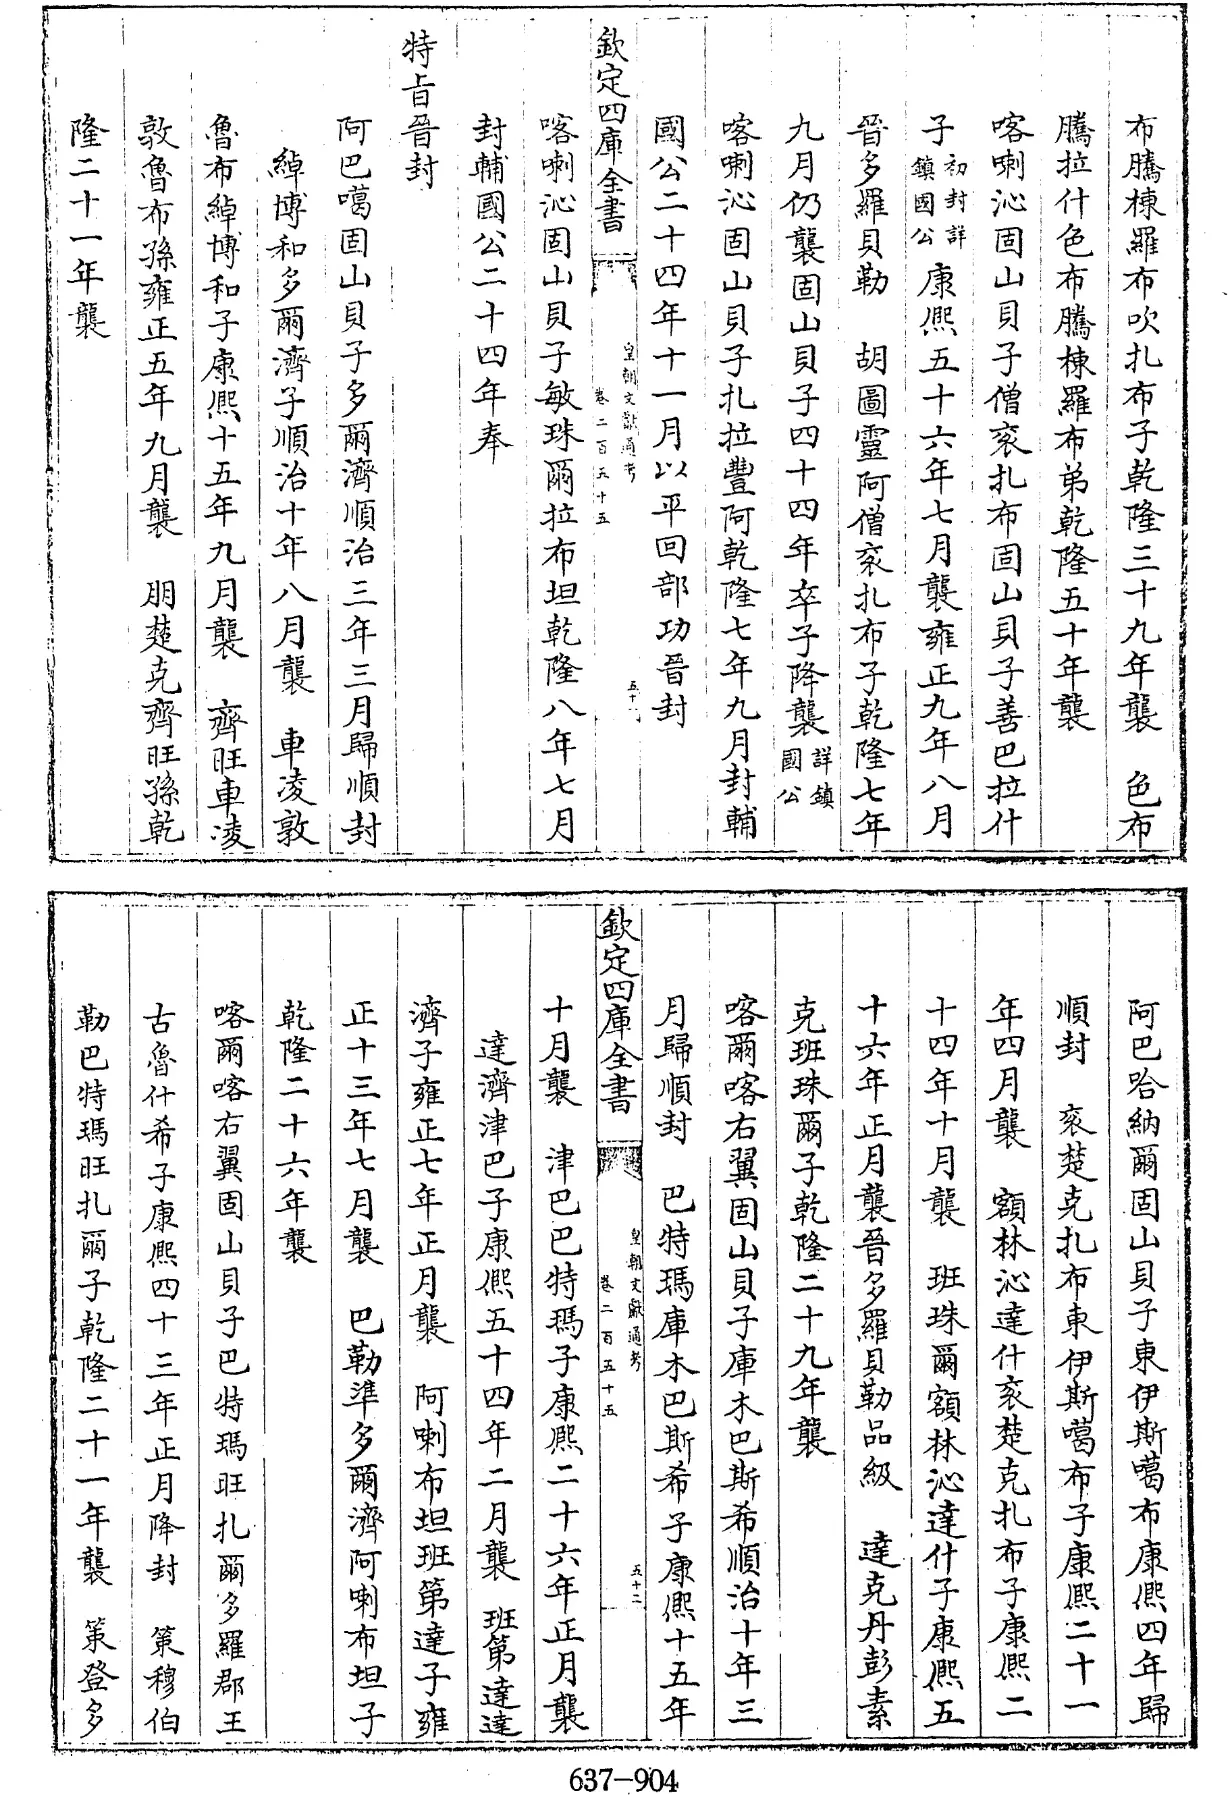 布騰棟羅布吹扎布子乾隆三十九年襲　色布
騰拉什色布騰棟羅布弟乾隆五十年襲
喀喇沁固山貝子僧衮扎布固山貝子善巴拉什
子初封詳鎮國公康熙五十六年七月襲雍正九年八月
晉多羅貝勒　胡圖靈阿僧衮扎布子乾隆七年
九月仍襲固山貝子四十四年卒子降襲詳鎮國公
喀喇沁固山貝子扎拉豐阿乾隆七年九月封輔
國公二十四年十一月以平回部功晉封
欽定四庫全書
皇朝文獻通考
卷二百五十五
五十一
喀喇沁固山貝子敏珠爾拉布坦乾隆八年七月
封輔國公二十四年奉
特旨晉封
阿巴噶固山貝子多爾濟順治三年三月歸順封
綽博和多爾濟子順治十年八月襲　車凌敦
魯布綽博和子康熙十五年九月襲　齊旺車凌
敦魯布孫雍正五年九月襲　朋楚克齊旺孫乾
隆二十一年襲
阿巴哈納爾固山貝子東伊斯噶布康熙四年歸
順封　衮楚克扎布東伊斯噶布子康熙二十一
年四月襲　額林沁達什衮楚克扎布子康熙二
十四年十月襲　班珠爾額林沁達什子康熙五
十六年正月襲晉多羅貝勒品級　達克丹彭素
克班珠爾子乾隆二十九年襲
喀爾喀右翼固山貝子庫木巴斯希順治十年三
月歸順封　巴特瑪庫木巴斯希子康熙十五年
欽定四庫全書
皇朝文獻通考
卷二百五十五
五十二
十月襲　津巴巴特瑪子康熙二十六年正月襲
達濟津巴子康熙五十四年二月襲　班第達達
濟子雍正七年正月襲　阿喇布坦班第達子雍
正十三年七月襲　巴勒準多爾濟阿喇布坦子
乾隆二十六年襲
喀爾喀右翼固山貝子巴特瑪旺扎爾多羅郡王
古魯什希子康熙四十三年正月降封　策穆伯
勒巴特瑪旺扎爾子乾隆二十一年襲　策登多
637-904